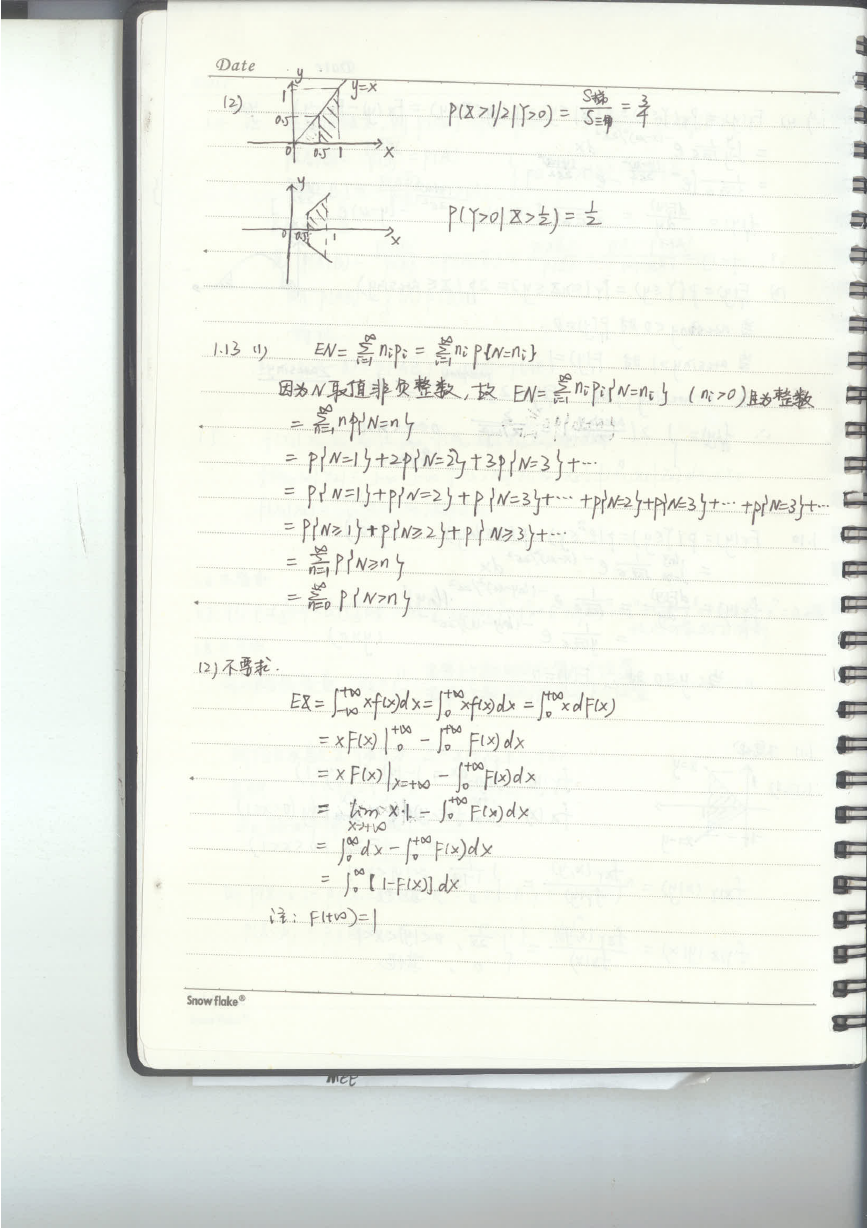 Date
(2) y 1 0.5 0 0.5 1 x y=x P(X>1/2|Y>0) = S梯/S三角 = 3/4
y 0 0.5 1 x P(Y>0|X>1/2) = 1/2
1.13 (1) EN = ∑_{i=1}^{∞} n_i p_i = ∑_{i=1}^{∞} n_i P{N=n_i}
因为N取值非负整数, 故 EN = ∑_{i=1}^{∞} n_i p_i{N=n_i} (n_i>0)且为整数
= ∑_{n=1}^{∞} nP{N=n}
= P{N=1}+2P{N=2}+3P{N=3}+⋯
= P{N=1}+P{N=2}+P{N=3}+⋯+P{N=2}+P{N=3}+⋯+P{N=3}+⋯
= P{N≥1}+P{N≥2}+P{N≥3}+⋯
= ∑_{n=1}^{∞} P{N≥n}
= ∑_{n=0}^{∞} P{N>n}
(2) 不要求.
EX = ∫_{-∞}^{+∞} xf(x)dx = ∫_0^{+∞} xf(x)dx = ∫_0^{+∞} x dF(x)
= xF(x)|_0^{+∞} - ∫_0^{+∞} F(x)dx
= xF(x)|_{x=+∞} - ∫_0^{+∞} F(x)dx
= lim_{x→+∞} x·1 - ∫_0^{+∞} F(x)dx
= ∫_0^{∞} dx - ∫_0^{+∞} F(x)dx
= ∫_0^{∞} [1-F(x)]dx
注: F(+∞)=1
Snow flake®